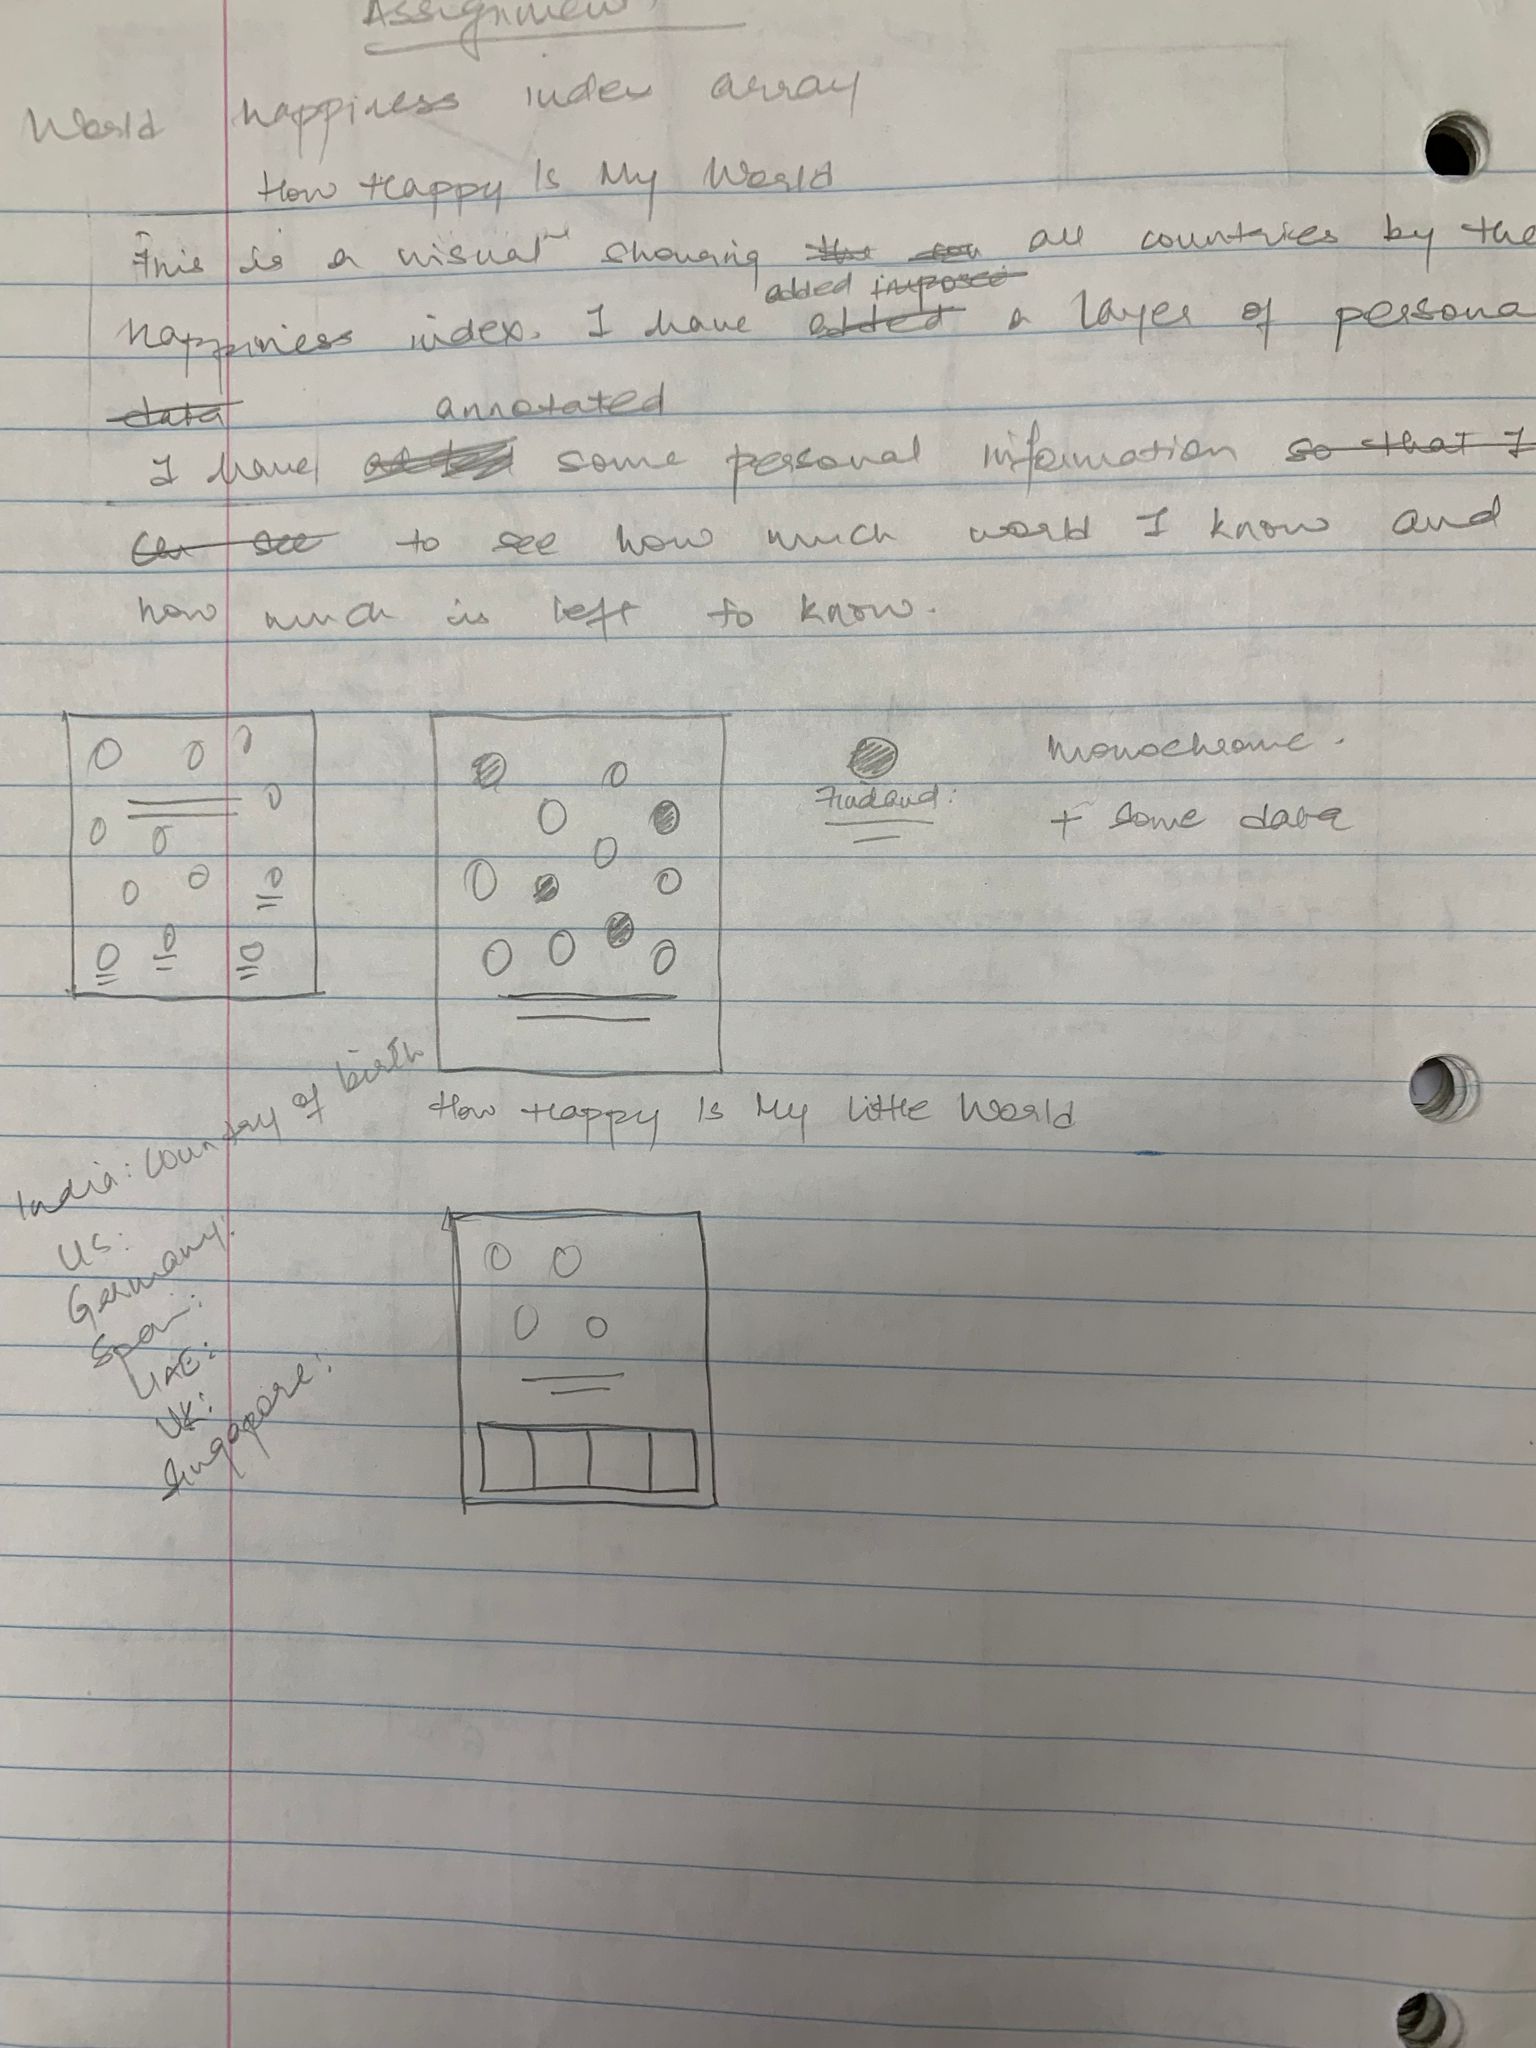 Assignment
World happiness index array
How Happy Is My World
This is a visual showing the all countries by the
added imposed
happiness index. I have added a layer of persona
data annotated
I have some personal information so that I
can see to see how much world I know and
how much is left to know.
Monochrome.
Finland:
+ some data
How Happy Is My Little World
India: Country of birth
US:
Germany:
Spain:
UAE:
UK:
Singapore: